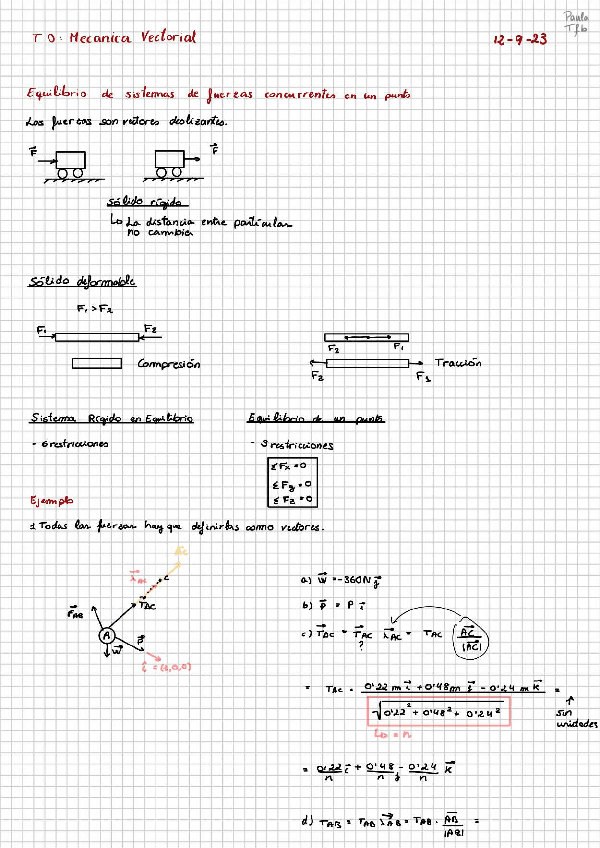 Paula
T fb
T 0: Mecanica Vectorial
12-9-23
Equilibrio de sistemas de fuerzas concurrentes en un punto
Las fuerzas son vectores deslizantes.
F⃗
F⃗
sólido rígido
↳ La distancia entre particular
no cambia
Sólido deformable
F₁ > F₂
F₁
F₂
F₂
F₁
Compresión
F₂
F₁
Tracción
Sistema Rígido en Equilibrio
Equilibrio de un punto
- 6 restricciones
- 3 restricciones
ΣFx = 0
ΣFy = 0
ΣFz = 0
Ejemplo
1 Todas las fuerzas hay que definirlas como vectores.
λ⃗AC
C
T⃗AC
F⃗AB
A
W⃗
P⃗
i⃗ = (1,0,0)
a) W⃗ = -360N j⃗
b) P⃗ = P i⃗
c) T⃗AC = T⃗AC λ⃗AC = TAC A⃗C / |A⃗C|
?
= TAC = 0'22 m i⃗ + 0'48 m j⃗ - 0'24 m k⃗ =
√0'22² + 0'48² + 0'24²
↳ = n
↑
sin
unidades
= 0'22/n i⃗ + 0'48/n j - 0'24/n k⃗
d) TAB = TAB λ⃗AB = TAB · A⃗B / |AB| =